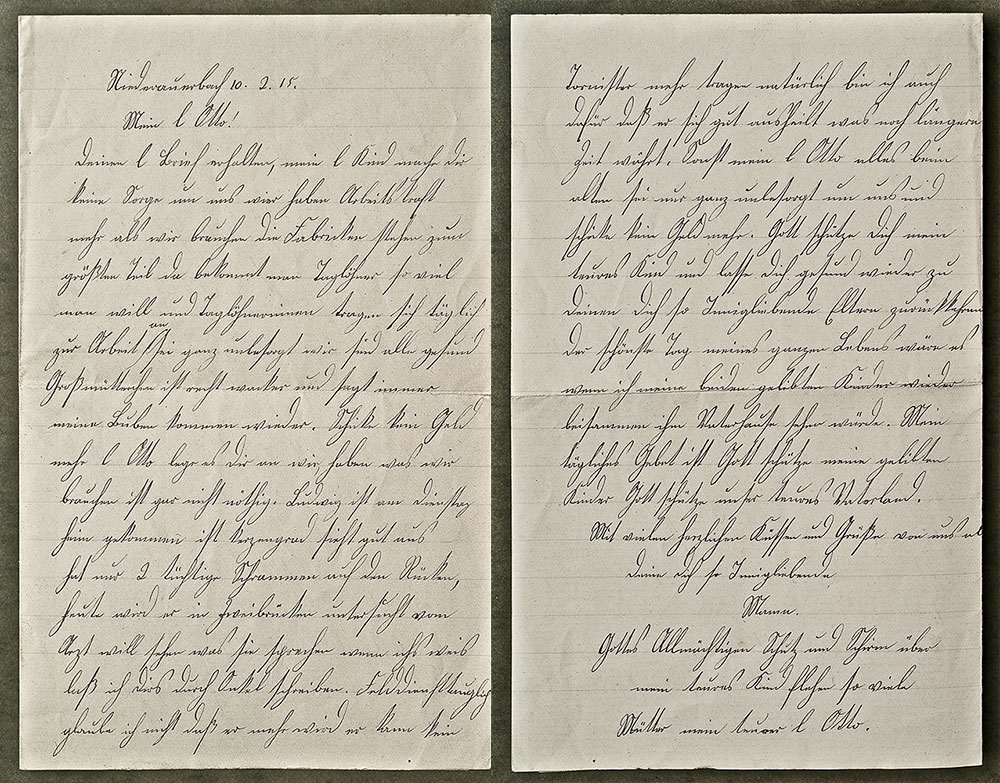 Niederauerbach 10. 2. 15.
Mein l Otto!
Deinen l Brief erhalten, mein l Kind mache dir
keine Sorge um uns wier haben Arbeitskraft
mehr als wir brauchen die Fabricken stehen zum
größten Teil da bekommt man Taglöhner so viel
man will und Taglöhnerinnen tragen sich täglich
zur Arbeit an sei ganz unbesorgt wir sind alle gesund
Großmütterchen ist recht wacker und sagt immer
meine Buben kommen wieder. Schike kein Geld
mehr l Otto lege es dir an wir haben was wir
brauchen ist gar nicht nöthig. Ludwig ist am Dienstag
heim gekommen ist kerzengrad sieht gut aus
hat nur 2 tüchtige Schrammen auf den Rücken,
heute wird er in Zweibrücken untersucht vom
Arzt will sehen was sie sprechen wenn ichs weis
laß ich dirs durch Onkel schreiben. Felddiensttauglich
glaube ich nicht daß er mehr wird er kann kein
Tornister mehr tragen natürlich bin ich auch
dafür daß er sich gut ausheilt was noch längere
Zeit währt. Sonst mein l Otto alles beim
alten sei nur ganz unbesorgt um uns und
schike kein Geld mehr. Gott schütze Dich mein
teures Kind und lasse Dich gesund wieder zu
Deinen Dich so Innigliebende Eltern zurückkehren
Der schönste Tag meines ganzen Lebens wäre es
wenn ich meine beiden gelibten Kinder wieder
beisammen ihm Vaterhause sehen würde. Mein
tägliches Gebet ist Gott schütze meine gelibten
Kinder Gott schütze unser teures Vaterland.
Mit vielen herzlichen Küssen und Grüße von uns all
Deine dich so Innigliebende
Mama.
Gottes Allmächtigen Schutz und Schirm über
mein teures Kind flehen so viele
Mütter mein teurer l Otto.